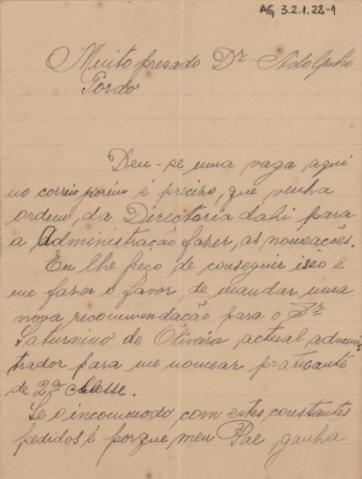 AG 3.2.1.22-1
Muito presado Dr Adolpho
Pordo
Deu-se uma vaga aqui
no correio porém é precizo, que venha
ordem, da Directoria dahi para
a Administração fazer, as nomeações.
Eu lhe peço de conseguir isso e
me fazer o favor de mandar, uma
nova recommendação para o Sr
Saturnino de Oliveira, actual adminis
trador para me nomear praticante
de 2ª Classe.
Se o incommodo com estes constantes
pedidos é porque meu Pae ganha